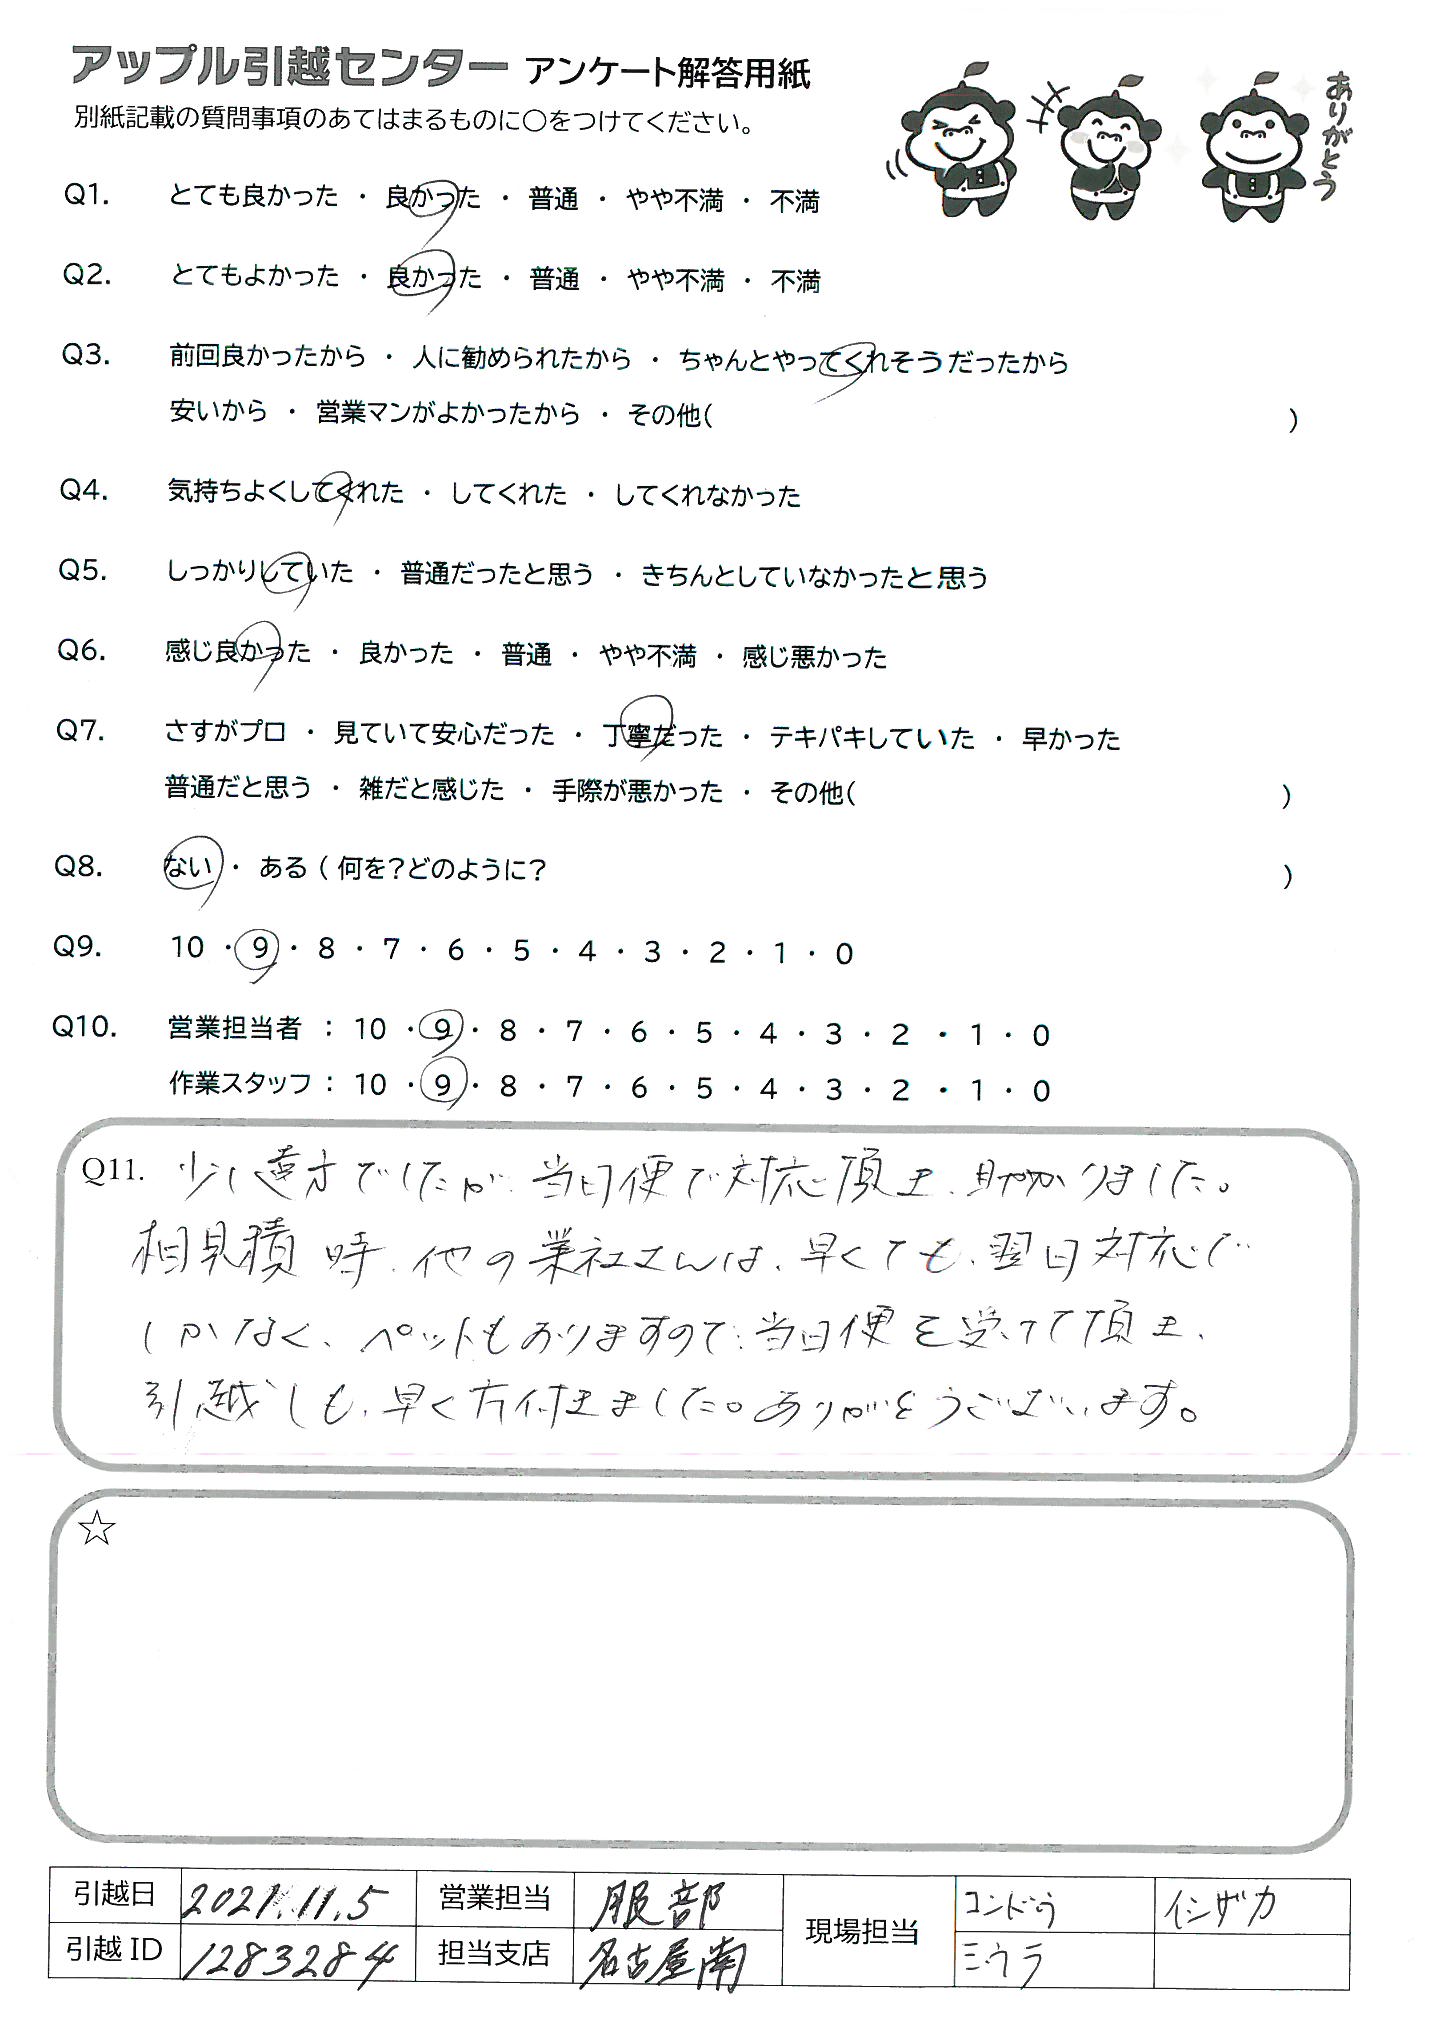 アップル引越センター アンケート解答用紙
別紙記載の質問事項のあてはまるものに○をつけてください。
ありがとう
Q1. とても良かった ・ 良かった ・ 普通 ・ やや不満 ・ 不満
Q2. とてもよかった ・ 良かった ・ 普通 ・ やや不満 ・ 不満
Q3. 前回良かったから ・ 人に勧められたから ・ ちゃんとやってくれそうだったから
安いから ・ 営業マンがよかったから ・ その他( )
Q4. 気持ちよくしてくれた ・ してくれた ・ してくれなかった
Q5. しっかりしていた ・ 普通だったと思う ・ きちんとしていなかったと思う
Q6. 感じ良かった ・ 良かった ・ 普通 ・ やや不満 ・ 感じ悪かった
Q7. さすがプロ ・ 見ていて安心だった ・ 丁寧だった ・ テキパキしていた ・ 早かった
普通だと思う ・ 雑だと感じた ・ 手際が悪かった ・ その他( )
Q8. ない ・ ある ( 何を?どのように? )
Q9. 10 ・ 9 ・ 8 ・ 7 ・ 6 ・ 5 ・ 4 ・ 3 ・ 2 ・ 1 ・ 0
Q10. 営業担当者 : 10 ・ 9 ・ 8 ・ 7 ・ 6 ・ 5 ・ 4 ・ 3 ・ 2 ・ 1 ・ 0
作業スタッフ : 10 ・ 9 ・ 8 ・ 7 ・ 6 ・ 5 ・ 4 ・ 3 ・ 2 ・ 1 ・ 0
Q11. 少し遠方でしたが、当日便で対応頂き、助かりました。
相見積時、他の業社さんは、早くても、翌日対応で
しかなく、ペットもおりますので、当日便を受けて頂き、
引越しも、早く方付きました。ありがとうございます。
☆
引越日 2021.11.5 営業担当 服部 現場担当 コンドウ イシザカ
引越ID 1283284 担当支店 名古屋南 ミウラ